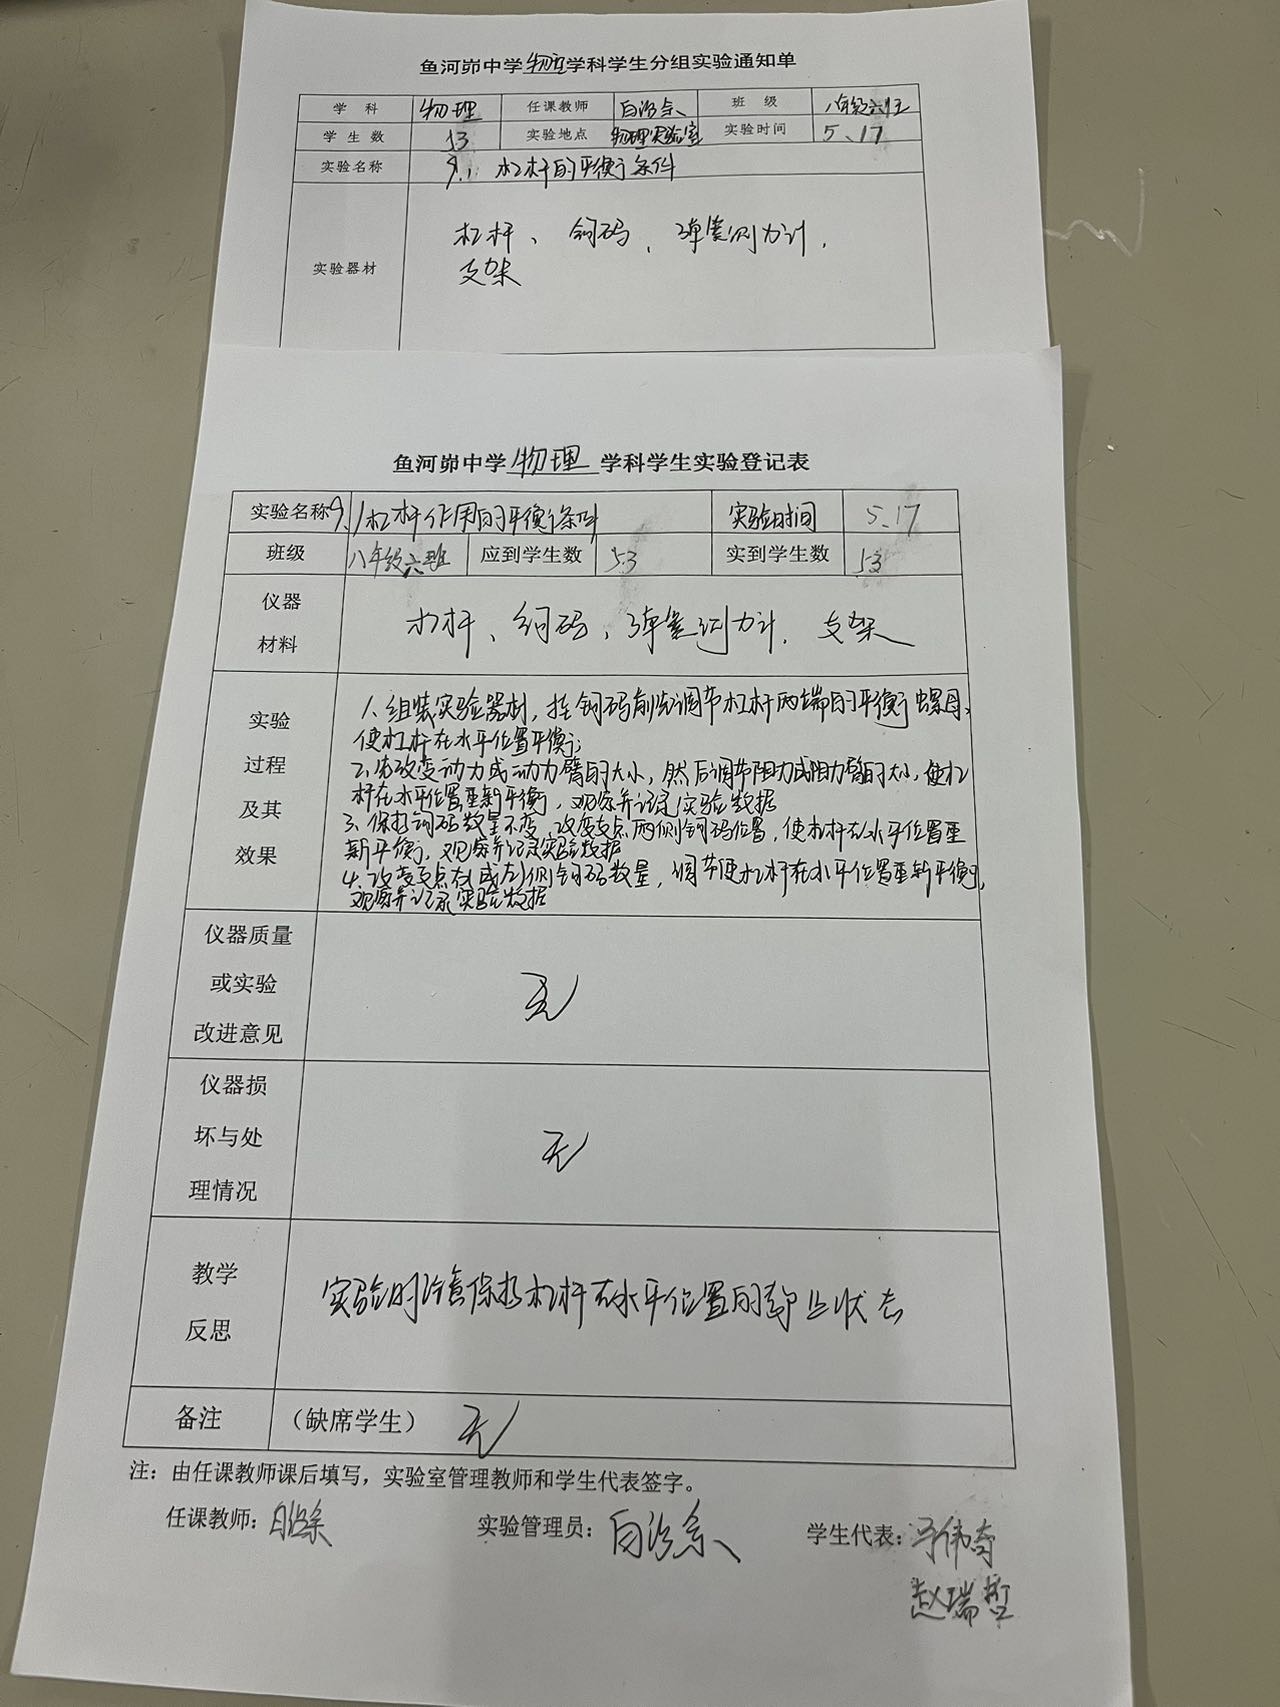 鱼河峁中学物理学科学生分组实验通知单
学科 物理 任课教师 班级 八年级六班
学生数 53 实验地点 物理实验室 实验时间 5、17
实验名称 9.1 杠杆的平衡条件
实验器材 杠杆、钩码、弹簧测力计,
支架
鱼河峁中学物理学科学生实验登记表
实验名称 9.1杠杆作用的平衡条件 实验时间 5、17
班级 八年级六班 应到学生数 53 实到学生数 53
仪器材料 杠杆、钩码、弹簧测力计,支架
实验过程及其效果
1、组装实验器材,挂钩码前先调节杠杆两端的平衡螺母,
使杠杆在水平位置平衡;
2、先改变动力或动力臂的大小,然后调节阻力或阻力臂的大小,使杠
杆在水平位置重新平衡,观察并记录实验数据
3、保持钩码数量不变,改变支点两侧钩码位置,使杠杆在水平位置重
新平衡,观察并记录实验数据
4、改变支点右或左侧钩码数量,调节使杠杆在水平位置重新平衡,
观察并记录实验数据
仪器质量或实验改进意见 无
仪器损坏与处理情况 无
教学反思 实验时注意保持杠杆在水平位置的静止状态
备注 (缺席学生) 无
注:由任课教师课后填写,实验室管理教师和学生代表签字。
任课教师: 实验管理员: 学生代表:
赵瑞哲